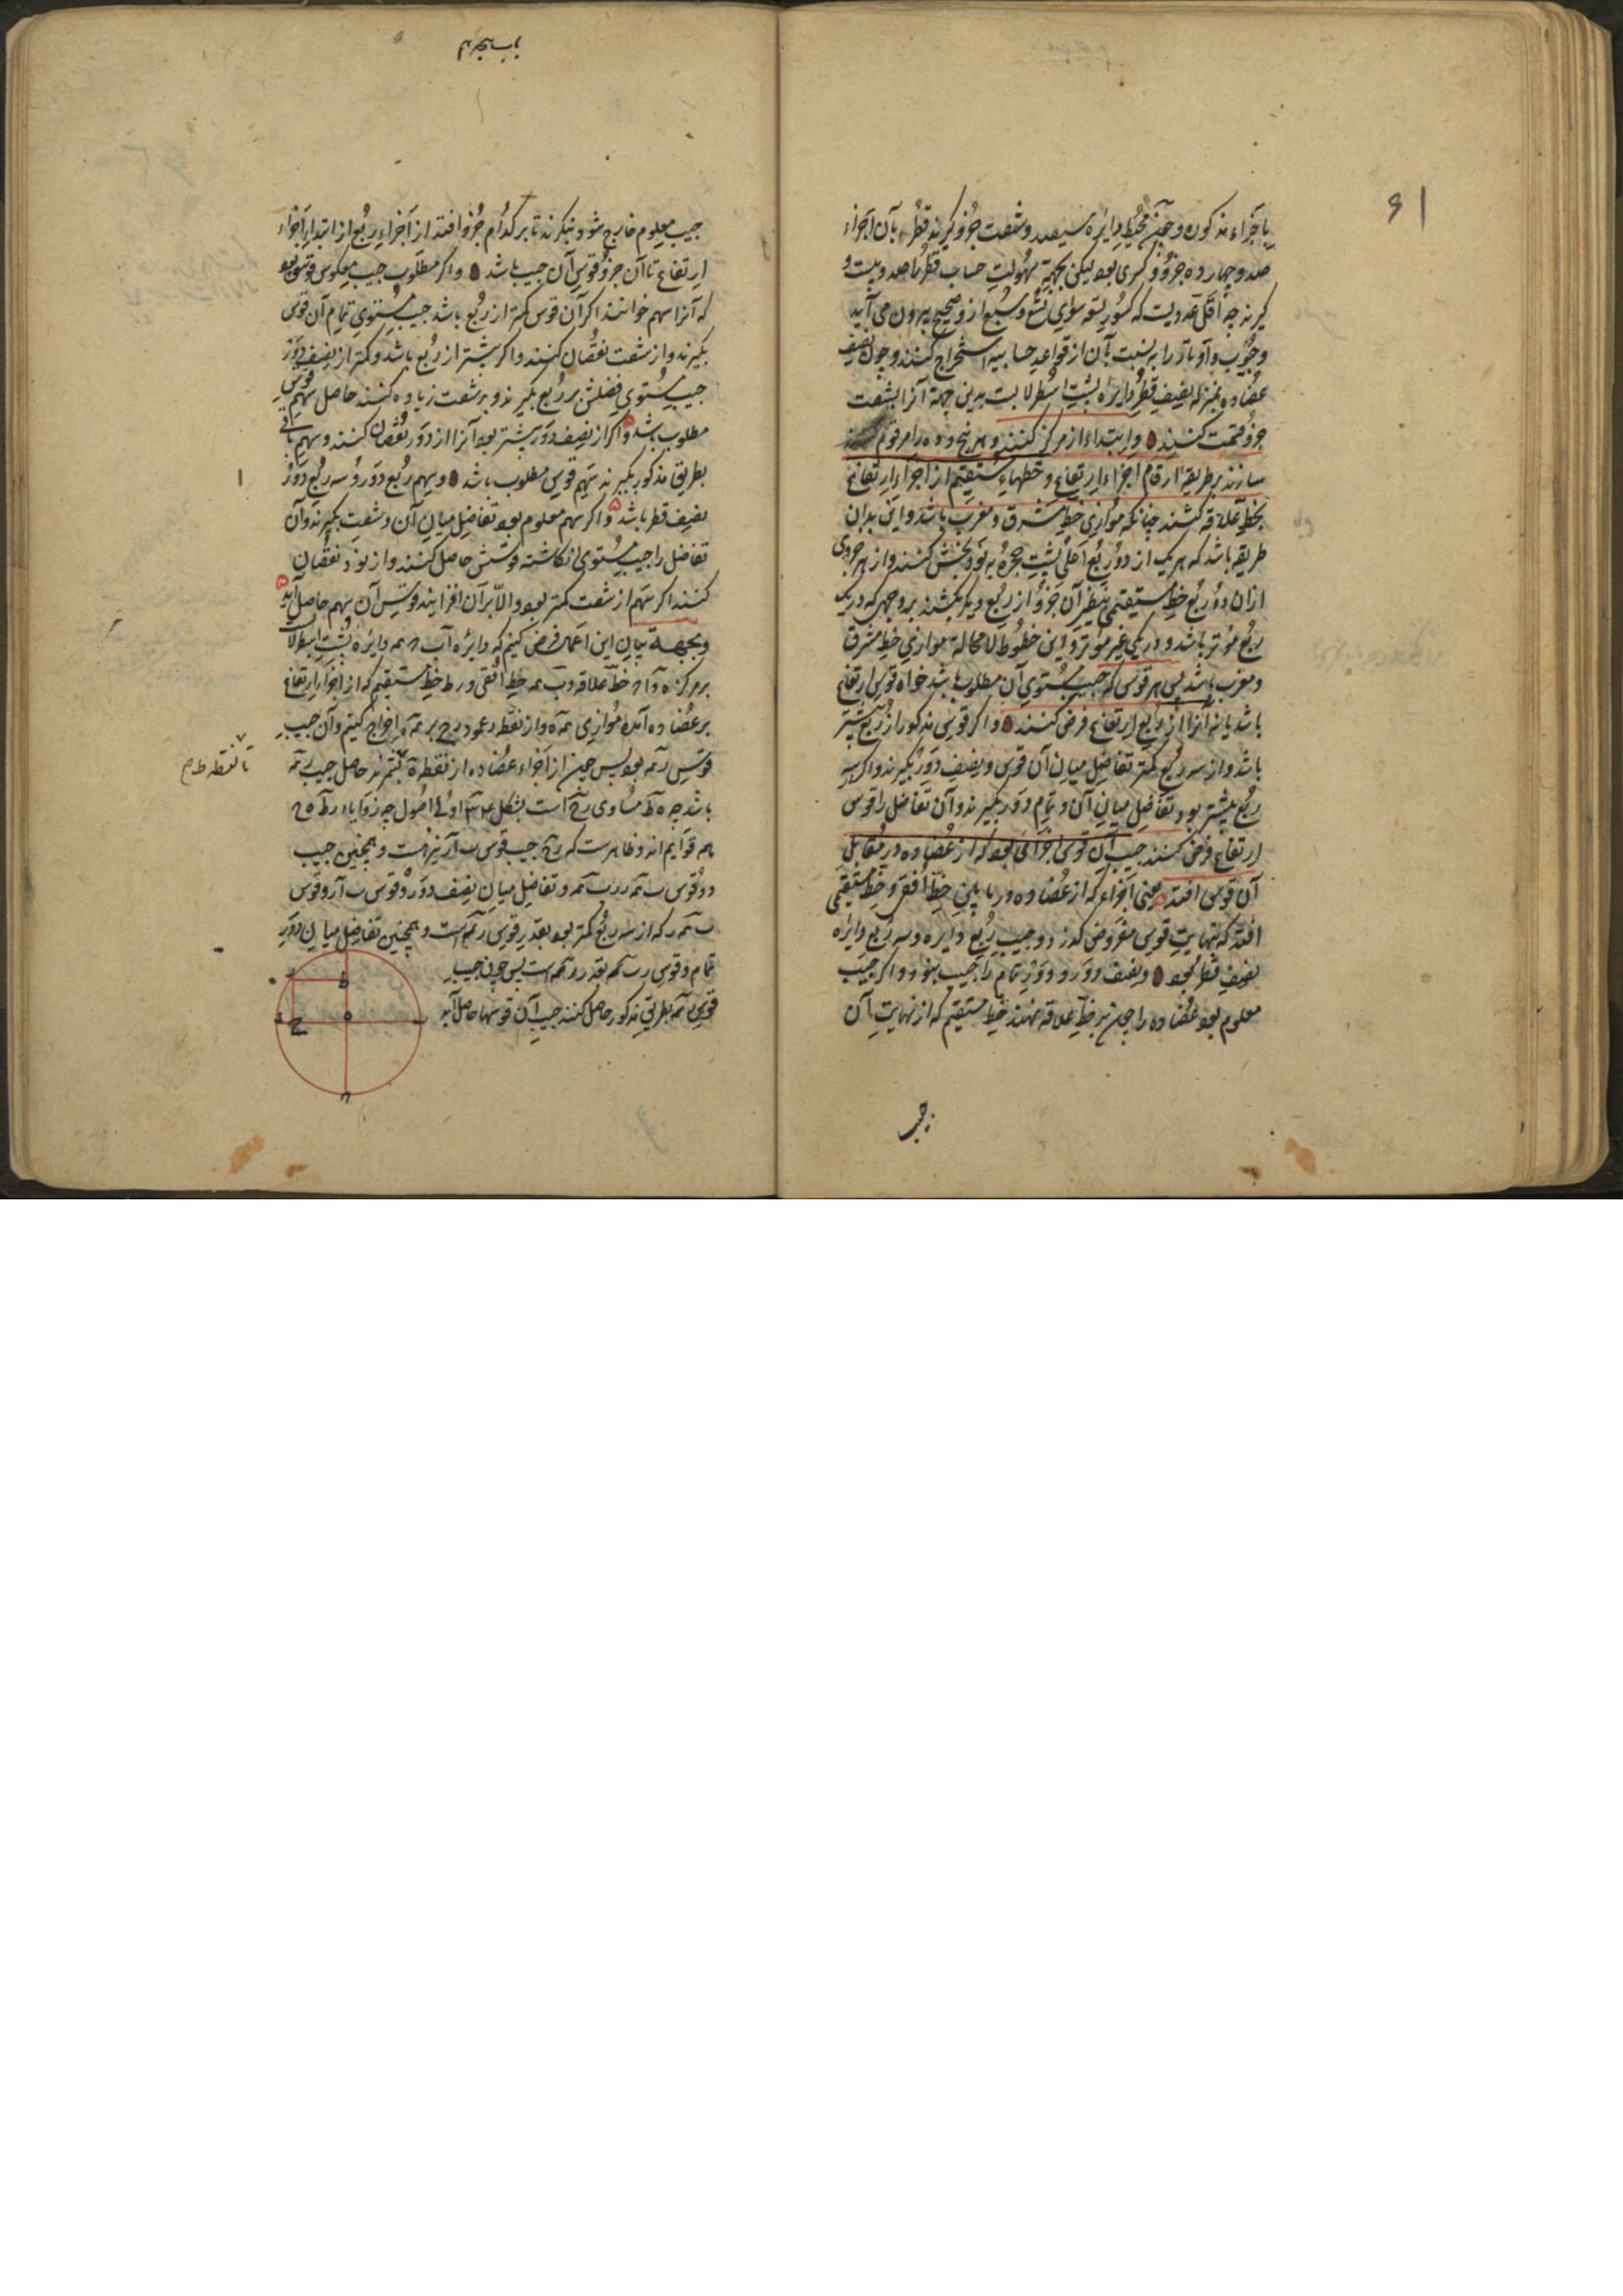 باجزاء مذکون و چون محیط دایره سیصد و شصت جزؤ گیرند قطر بآن اجزاء
صد و چهارده جزؤ و کسری بود لیکن بجهة سهولت حساب قطر را صد و بیست
گیرند چه اقل عددیست که کسور تسعه سوای تسع و سبع ازو صحیح بیرون می آید
و جیوب و اوتار را به نسبت بآن از قواعد حسابیه استخراج کنند و چون نصف
عضاده بمنزله نصف قطر دایره پشت اسطرلابست بدین جهة آنرا بشصت
جزؤ قسمت کنند و ابتداء از مرکز کنند و هر پنج و ده را مرقوم
سازند بر طریقه ارقام اجزاء ارتفاع و خطهاء مستقیم از اجزاء ارتفاع
بخط علاقه کشند چنانکه موازی خط مشرق و مغرب باشد و این بدان
طریقه باشد که هر یک از دو ربع اعلی پشت حجره به نود بخش کنند و از هر جزوی
ازان دو ربع خط مستقیمی بنظیر آن جزؤ از ربع دیگر بکشند بر وجهی که در یک
ربع مؤثر باشد و در یکی غیر مؤثر و این خطوط لامحاله موازی خط مشرق
و مغرب باشد پس هر قوسی که جیب مستوی آن مطلوب باشد خواه قوس ارتفاع
باشد یا نه آنرا از ربع ارتفاع فرض کنند و اگر قوسی مذکور از ربع بیشتر
باشد و از سه ربع کمتر تفاضل میان آن قوس و نصف دور بگیرند و اگر سه
ربع بیشتر بود تفاضل میان آن و تمام دور بگیرند و آن تفاضل را قوس
ارتفاع فرض کنند جیب آن قوس اجزائی بود که از عضاده در مقابل
آن قوس افتد یعنی اجزاء که از عضاده در مابین خط افق و خط مستقیمی
افتد که بنهایت قوس مفروض گذرد و جیب ربع دایره و سه ربع دایره
نصف قطر بود و نصف دور و دور تمام را جیب بنود و اگر جیب
معلوم بود عضاده را چون بر خط علاقه نهند خط مستقیم که از نهایت آن
جیب
باب سیم
جیب معلوم خارج شود بنگرند تا بر کدام جزؤ افتد از اجزاء ربع از ابتداء اجزاء
ارتفاع تا آن جزؤ قوس آن جیب باشد و اگر مطلوب جیب معکوس قوسی بود
که آنرا سهم خوانند اگر آن قوس کمتر از ربع باشد جیب مستوی تمام آن قوس
بگیرند و از شصت نقصان کنند و اگر بیشتر از ربع باشد و کمتر از نصف دور
جیب مستوی فضلش بر ربع بگیرند و بر شصت زیاده کنند حاصل سهم قوس
مطلوب باشد و اگر از نصف دور بیشتر بود آنرا از دور نقصان کنند و سهم باقی
بطریق مذکور بگیرند سهم قوس مطلوب باشد و سهم ربع دور و سه ربع دور
نصف قطر باشد و اگر سهم معلوم بود تفاضل میان آن و شصت بگیرند و آن
تفاضل را جیب مستوی انگاشته قوسش حاصل کنند و از نود نقصان
کنند اگر سهم از شصت کمتر بود و الا بر آن افزایند قوس آن سهم حاصل آید
و بجهة بیان این اعمال فرض کنیم که دایره اب ح مه دایره پشت اسطرلاب
بر مرکز ه و اح خط علاقه و ب مه خط افقی و رط خط مستقیم که از اجزاء ارتفاع
بر عضاده آمده موازی مه ه و از نقطه ر عمود رح بر مه ه اخراج کنیم و آن جیب
قوس رمه بود پس چون از اجزاء عضاده از نقطه ه بگیرند حاصل جیب رمه
تا نقطه ط م
باشد چه ه ط مساوی رح است بشکل اولی اصول چه زوایاء رط ه ح
همه قوایم اند و ظاهرست که رح جیب قوس ب ار نیز هست و همچنین جیب
دو قوس ب مه ر رب مه و تفاضل میان نصف دور و قوس ب ار و قوس
ب مه ر که از سه ربع کمتر بود بقدر قوس رمه است و همچنین تفاضل میان دور
تمام و قوس رب مه بقدر رمه است پس چون جیب
قوس رمه بطریق مذکور حاصل کنند جیب آن قوسها حاصل آید